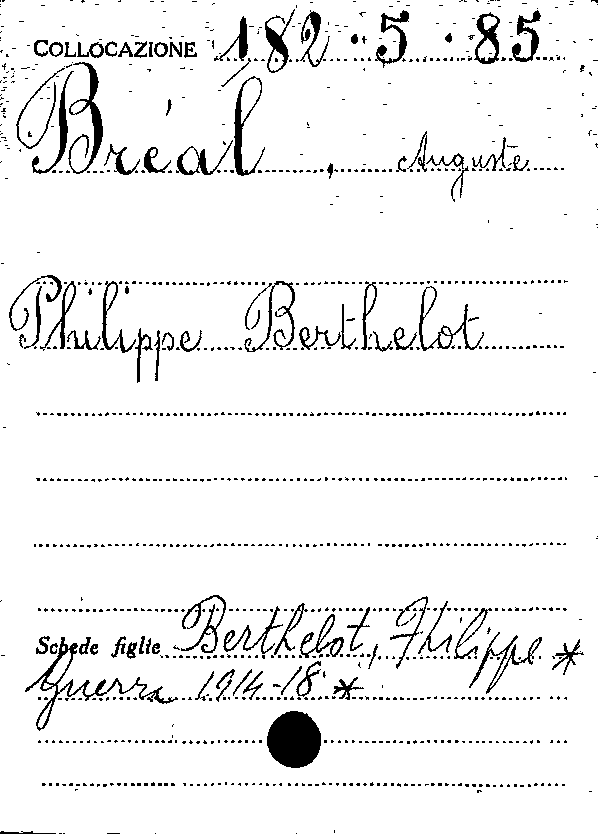 COLLOCAZIONE 182.5.85
Bréal, Auguste
Philippe Berthelot
Schede figlie Berthelot, Philippe *
Guerra 1914-18 *